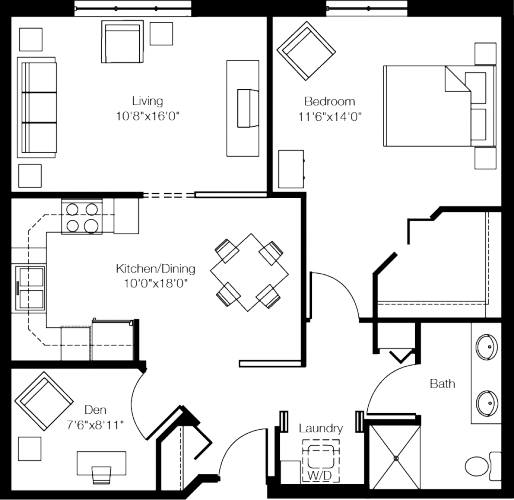 Living
10'8"x16'0"
Bedroom
11'6"x14'0"
Kitchen/Dining
10'0"x18'0"
Den
7'6"x8'11"
Bath
Laundry
W/D